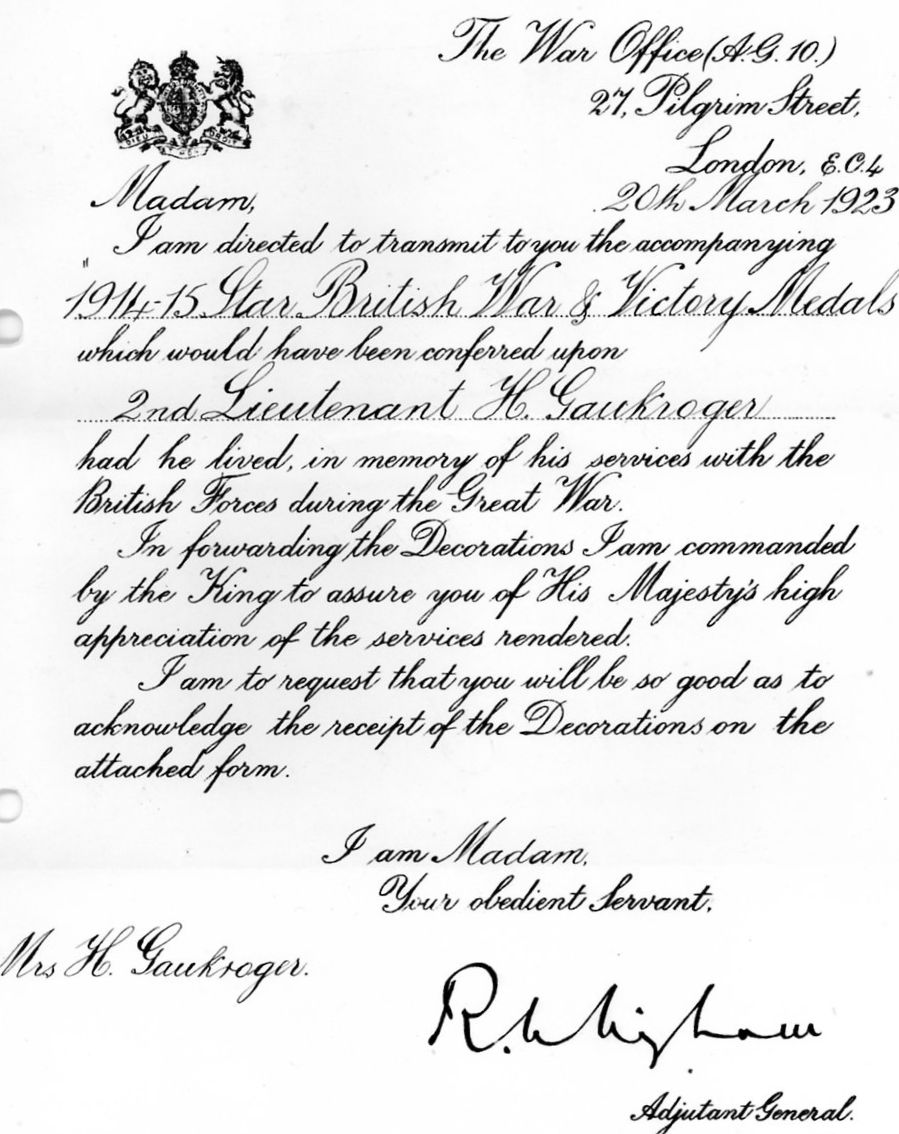 The War Office (A.G. 10.)
27, Pilgrim Street,
London, E.C.4
20th March 1923
DIEU ET MON DROIT
Madam,
I am directed to transmit to you the accompanying
" 1914-15 Star British War & Victory Medals
which would have been conferred upon
2nd Lieutenant H. Gaukroger
had he lived, in memory of his services with the
British Forces during the Great War.
In forwarding the Decorations I am commanded
by the King to assure you of His Majesty's high
appreciation of the services rendered.
I am to request that you will be so good as to
acknowledge the receipt of the Decorations on the
attached form.
I am Madam,
Your obedient Servant,
Mrs H. Gaukroger.
R. Whigham
Adjutant General.